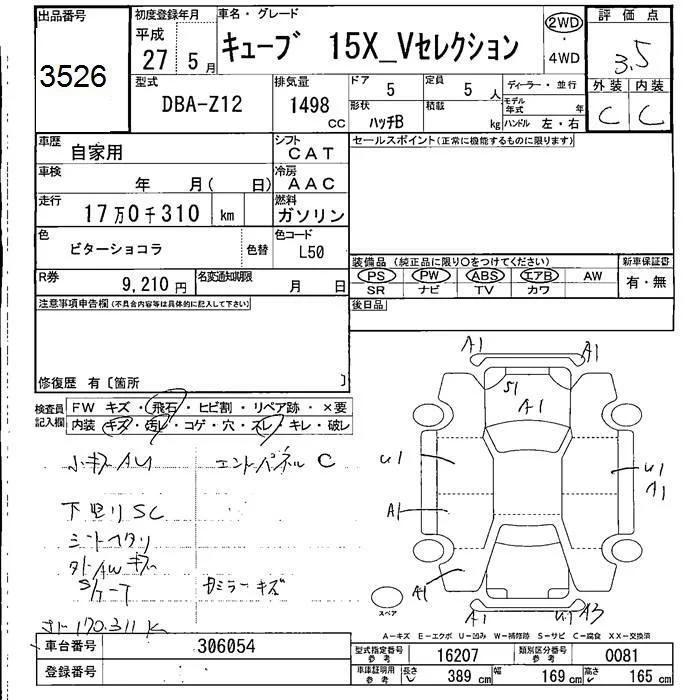 出品番号 初度登録年月 車名・グレード 評価点
3526 平成 27年 5月 キューブ 15X_Vセレクション 2WD・4WD 3.5
型式 排気量 ドア 5 定員 5人 ディーラー・並行 外装 内装
DBA-Z12 1498 CC 形状 ハッチB 積載 kg モデル年式 年 ハンドル 左・右 C C
車歴 自家用 シフト CAT セールスポイント(正常に機能するものに限ります)
車検 年 月( 日) 冷房 AAC
走行 17万0千310 km 燃料 ガソリン
色 ビターショコラ 色替 色コード L50
装備品(純正品に限り○をつけてください) 新車保証書
R券 9,210円 名変通知期限 月 日 PS PW ABS エアB AW 有・無
SR ナビ TV カワ
注意事項申告欄(不具合内容等は具体的に記入して下さい) 後日品
修復歴 有〔箇所 〕
検査員記入欄 FW キズ・飛石・ヒビ割・リペア跡・×要
内装 キズ・汚レ・コゲ・穴・スレ・キレ・破レ
A1 A1
S1 A1
小キズ AU エンドパネル C
U1 U1 A1
下廻り SC A1
シートヘタリ
タイヤ AW キズ
A1
S/T-T
ミラーキズ
スペア
A1 U1 A3
170.311K
A-キズ E-エクボ U-凹み W-補修跡 S-サビ C-腐食 XX-交換済
車台番号 306054 型式指定番号 参考 16207 類別区分番号 参考 0081
登録番号 車庫証明用 参考 長さ 389 cm 幅 169 cm 高さ 165 cm